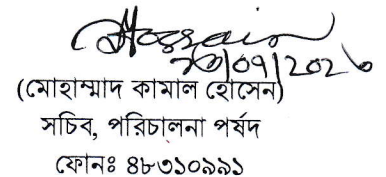 Hossain
(মোহাম্মাদ কামাল হোসেন)
সচিব, পরিচালনা পর্ষদ
ফোনঃ ৪৮৩১০৯৯১